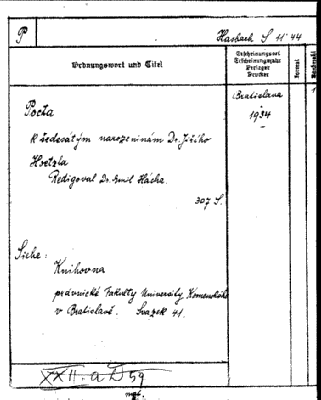 P
Hasbach S 11 44
Ordnungswort und Titel
Erscheinungsort
Erscheinungsjahr
Verleger
Drucker
Format
Bandzahl
Pocta
k šedesátým narozeninám Dr. Jiřího
Hoetzla
Redigoval Dr. Emil Hácha.
307 S.
Bratislava
1934
1
Siehe:
Knihovna
právnické fakulty University Komenského
v Bratislavě. Svazek 41.
XXII. a D 59